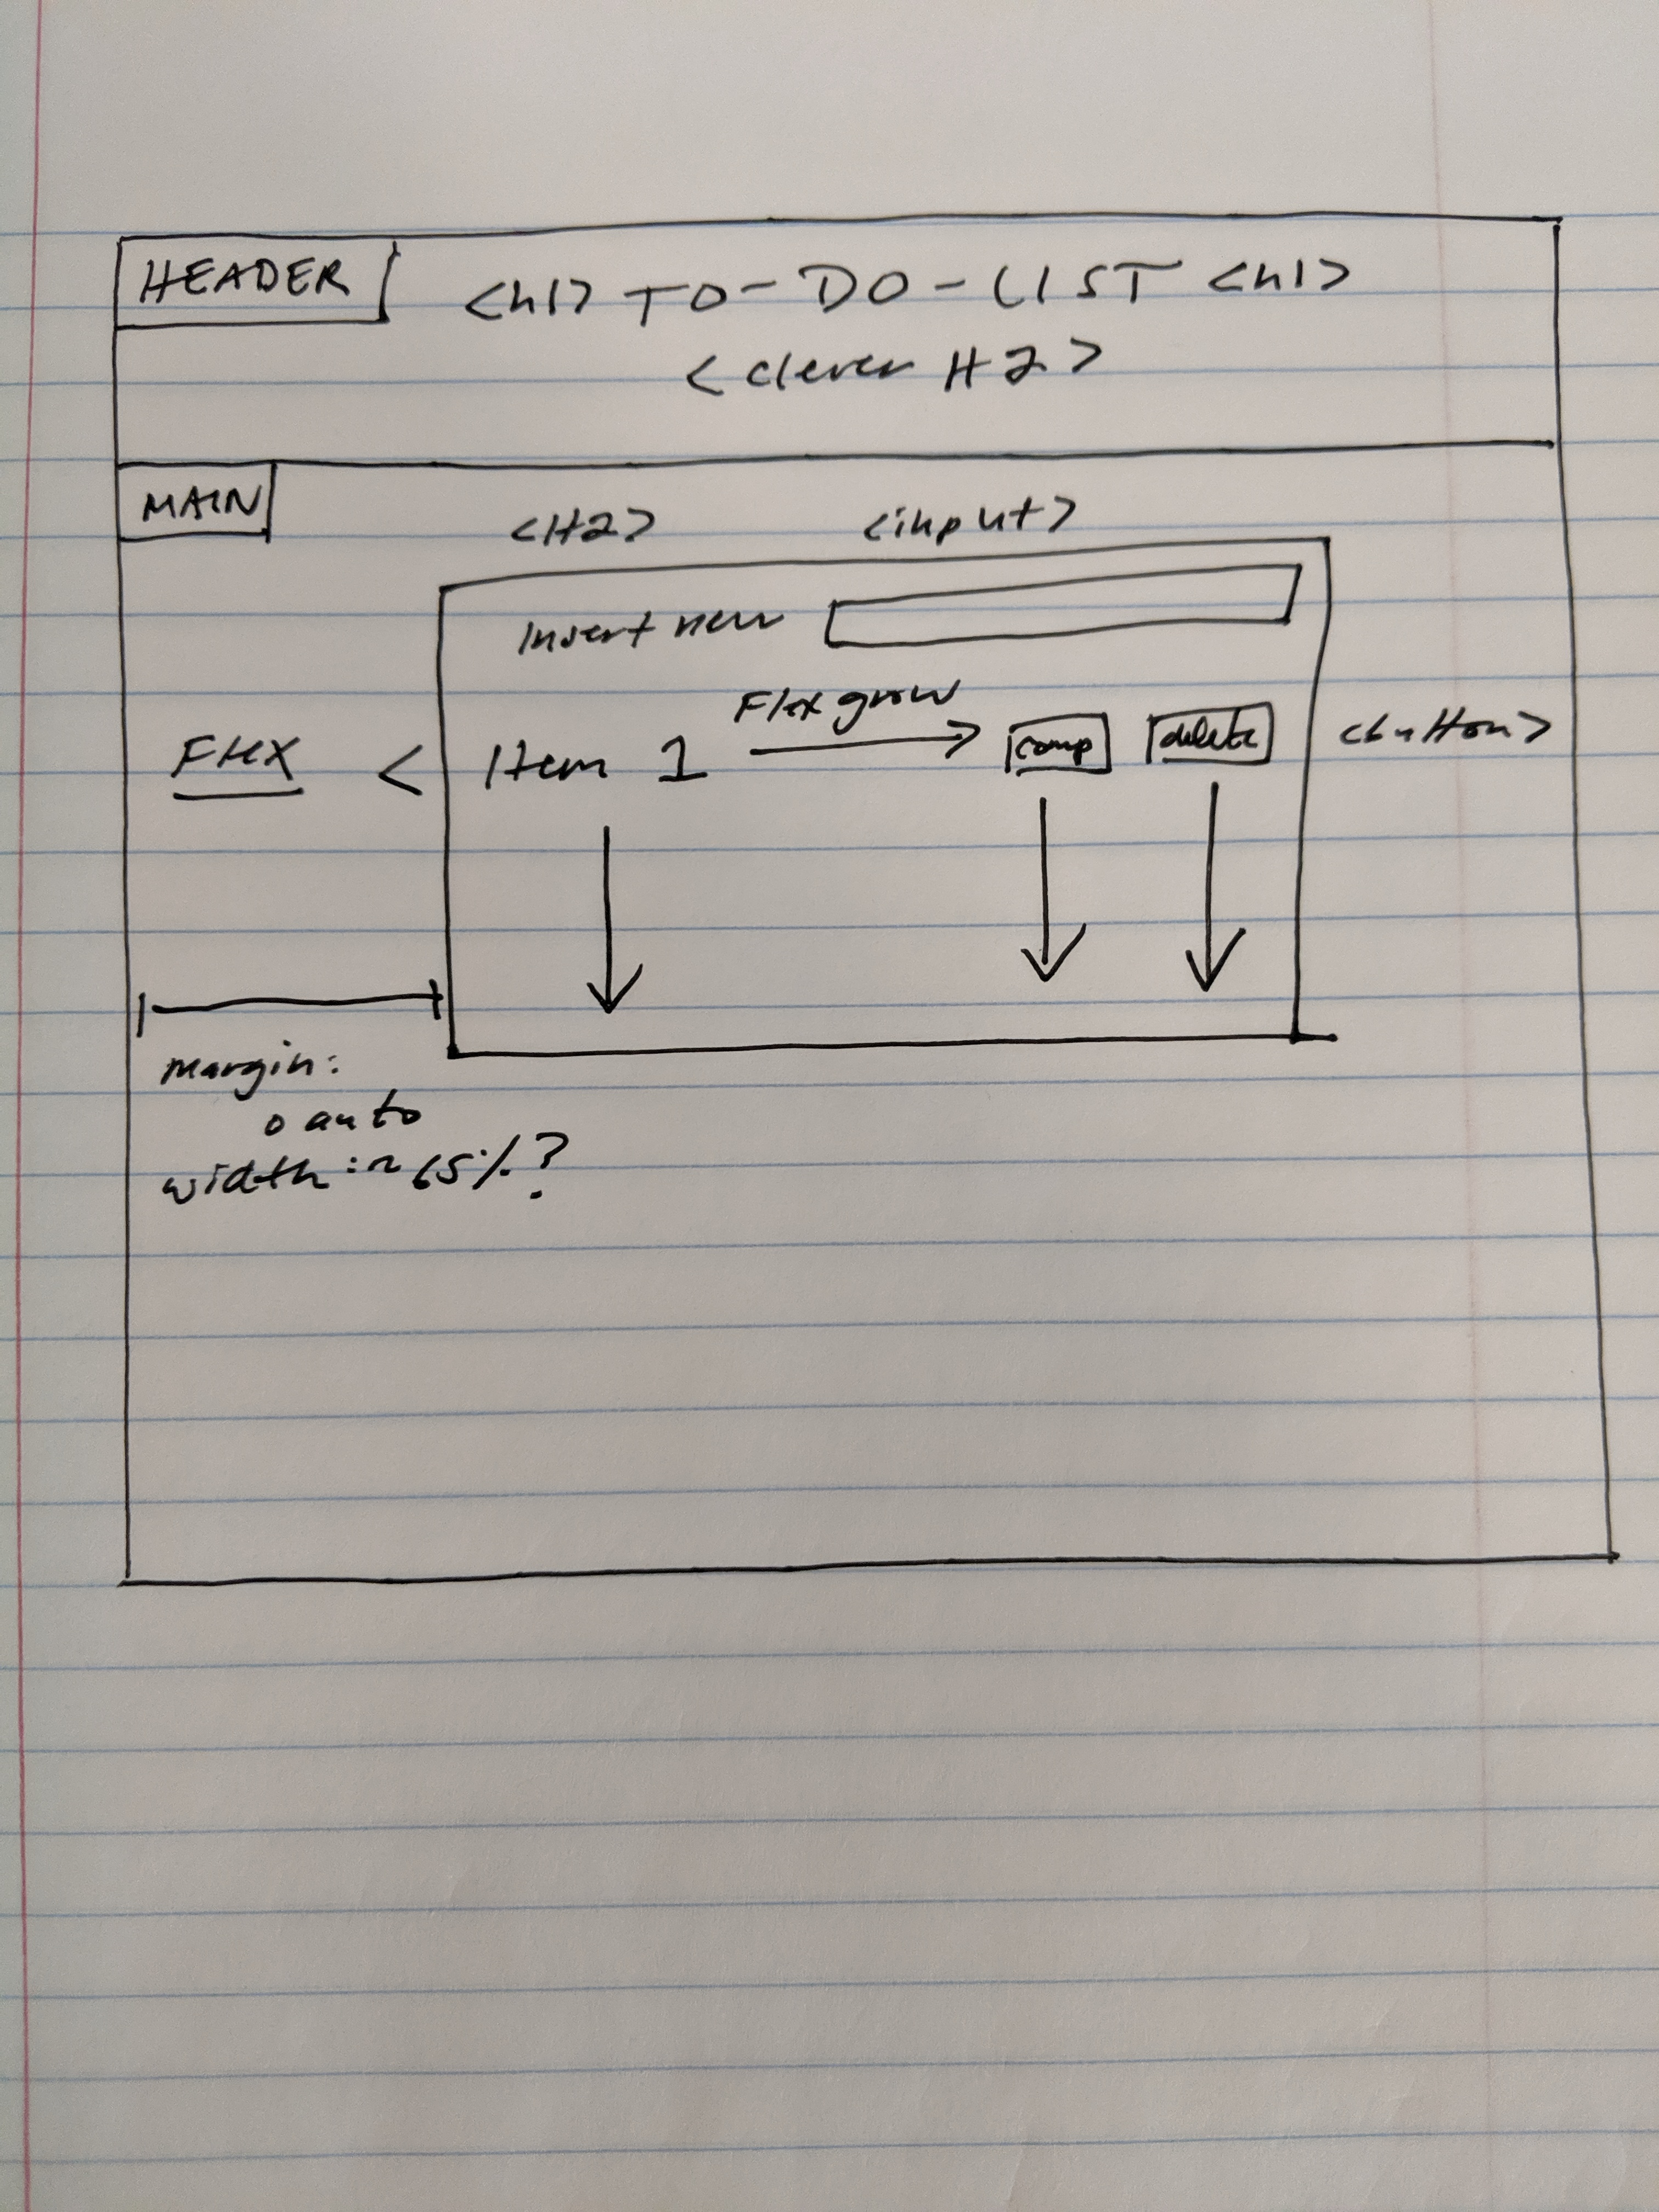 HEADER
<h1> TO-DO-LIST <h1>
<clever H2>
MAIN
<H2> <input>
Insert new
Flex grow
FLEX < Item 1 comp delete <button>
margin:
0 auto
width: ~ 65%?